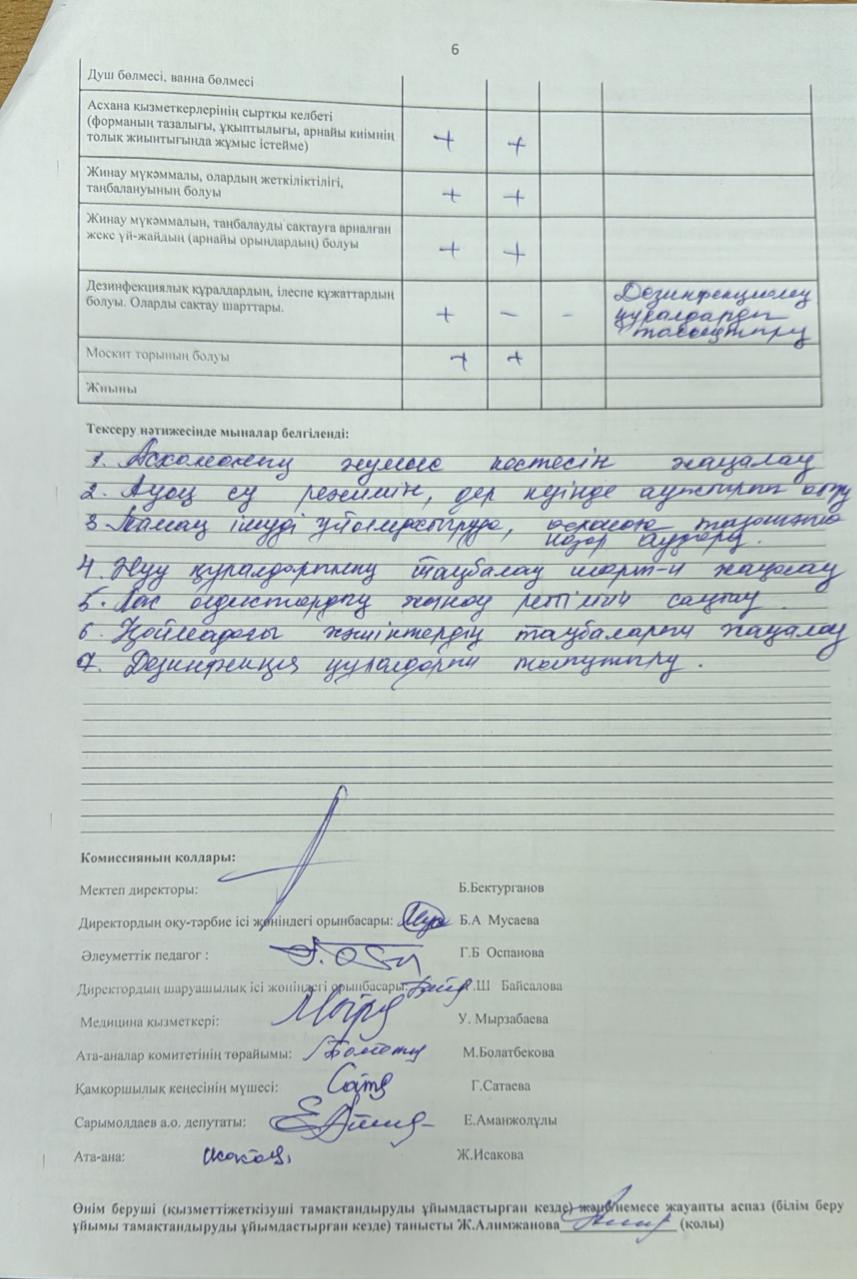 6
Душ бөлмесі, ванна бөлмесі
Асхана қызметкерлерінің сыртқы келбеті
(форманың тазалығы, ұқыптылығы, арнайы киімнің
толық жиынтығында жұмыс істейме)
+ +
Жинау мүкәммалы, олардың жеткіліктілігі,
таңбалануының болуы
+ +
Жинау мүкәммалын, таңбалауды сақтауға арналған
жеке үй-жайдың (арнайы орындардың) болуы
+ +
Дезинфекциялық құралдардың, ілеспе құжаттардың
болуы. Оларды сақтау шарттары.
+ - -
Дезинфекциялау
құралдарды
Москит торының болуы
+ +
Жиыны
Тексеру нәтижесінде мыналар белгіленді:
1. Асхананың жұмыс кестесін жаңалау
2. Ауыз су режимін, дер кезінде ауыстырып
3 Тамақ ішуді ұйымдастыруда, тазалығына
назар аудару.
4. Жуу құралдарының таңбалау жаңалау
5. Лас ыдыстарды жинау ретімін сақтау
6. Қоймадағы жәшіктердің таңбаларын жаңалау
7. Дезинфекция құралдарын
Комиссияның қолдары:
Мектеп директоры: Б.Бектурганов
Директордың оқу-тәрбие ісі жөніндегі орынбасары: Б.А Мусаева
Әлеуметтік педагог : Г.Б Оспанова
Директордың шаруашылық ісі жөніндегі орынбасары: Ш Байсалова
Медицина қызметкері: У. Мырзабаева
Ата-аналар комитетінің төрайымы: М.Болатбекова
Қамқоршылық кеңесінің мүшесі: Г.Сатаева
Сарымолдаев а.о. депутаты: Е.Аманжолұлы
Ата-ана: Ж.Исакова
Өнім беруші (қызметтіжеткізуші тамақтандыруды ұйымдастырған кезде) және/немесе жауапты аспаз (білім беру
ұйымы тамақтандыруды ұйымдастырған кезде) танысты Ж.Алимжанова (қолы)